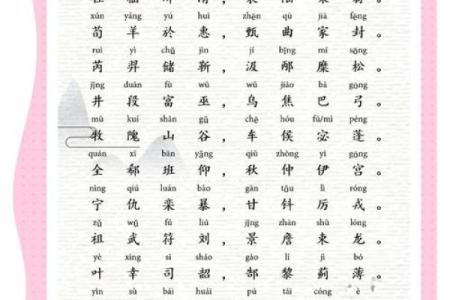 xún yáng yū huì zhēn qū jiā fēng
荀羊於惠，甄曲家封。
ruì yì chǔ jìn jí bǐng mí sōng
芮羿储靳，汲邴糜松。
jǐng duàn fù wū wū jiāo bā gōng
井段富巫，乌焦巴弓。
mù kuí shān gǔ chē hóu fú/mì péng
牧隗山谷，车侯宓蓬。
quán xī bān yǎng qiū zhòng yī gōng
全郗班仰，秋仲伊宫。
níng qiú luán bào gān tǒu lì róng
宁仇栾暴，甘钭厉戎。
zǔ wǔ fú liú jǐng zhān shù lóng
祖武符刘，景詹束龙。
yè xìng sī sháo gào lí jì bó
叶幸司韶，郜黎蓟薄。
yìn sù bái huái pú tái cóng è